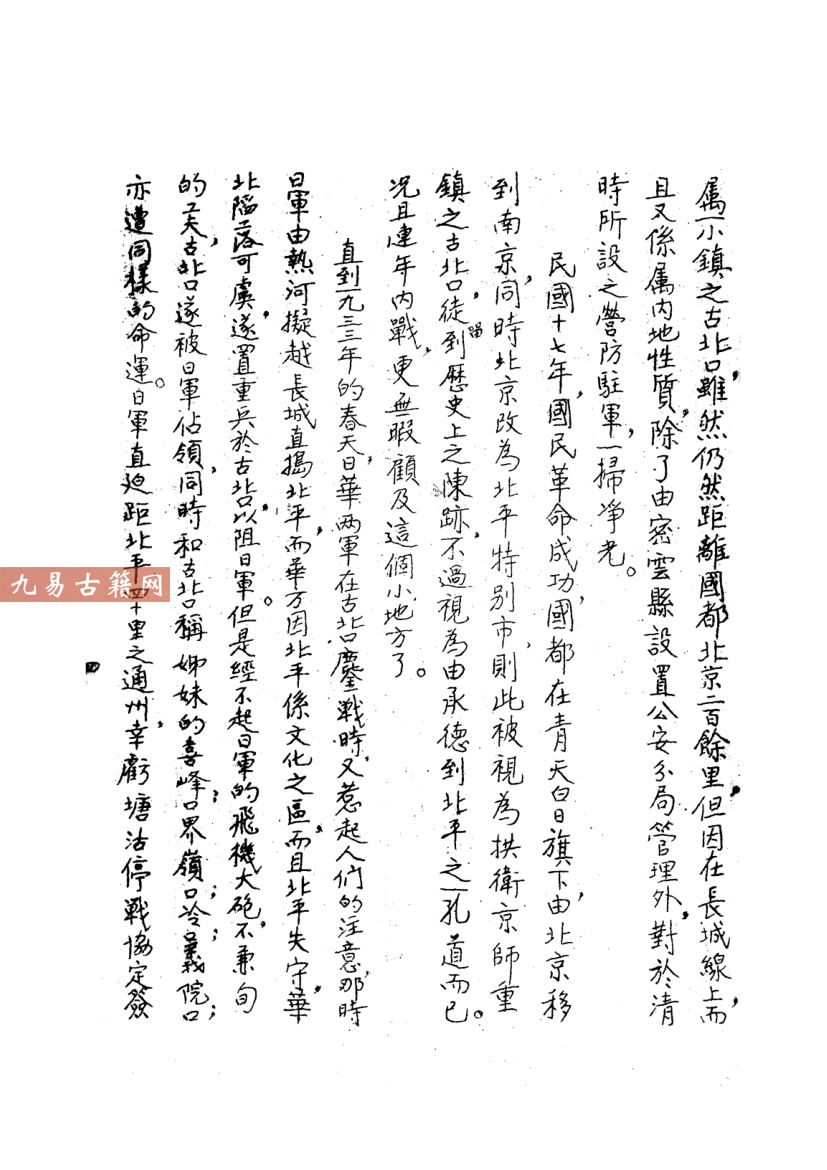 属一小鎮之古北口，雖然仍然距離國都北京二百餘里，但因在長城線上，而
且又係属内地性質，除了由密雲縣設置公安分局管理外，對於清
時所設之營防駐軍，一掃净光。
民國十七年，國民革命成功，國都在青天白日旗下，由北京移
到南京，同時北京改為北平特别市，則此被視為拱衛京師重
鎮之古北口，徒留到歷史上之陳跡，不過視為由承德到北平之一孔道而已。
况且連年内戰，更無暇顧及這個小地方了。
直到一九三三年的春天，日華两軍在古北口鏖戰時，又惹起人们的注意，那時
日軍由熱河擬越長城直搗北平，而華方因北平係文化之區，而且北平失守，華
北陷落可虞，遂置重兵於古北口以阻日軍。但是經不起日軍的飛機大砲，不兼旬
的工夫，古北口遂被日軍佔領，同時和古北口稱姊妹的喜峰口；界嶺口；冷口；義院口；
亦遭同樣的命運。日軍直廹距北平四十里之通州，幸虧塘沽停戰協定簽
四
九易古籍网